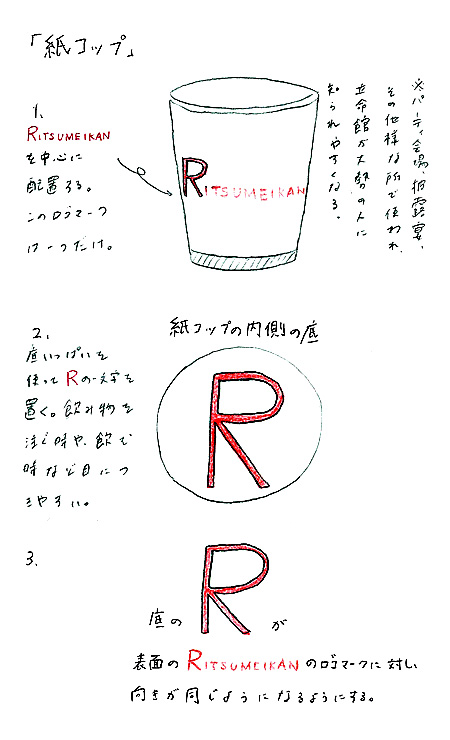 「紙コップ」
1.
RITSUMEIKAN
を中心に
配置する。
このロゴマーク
は一つだけ。
RITSUMEIKAN
※パーティ会場、披露宴、
その他様々な所で使われ、
立命館が大勢の人に
知られやすくなる。
2.
底いっぱいを
使ってRの一文字を
置く。飲み物を
注ぐ時や、飲む
時など目につ
きやすい。
紙コップの内側の底
R
3.
底の R が
表面の RITSUMEIKAN のロゴマークに対し
向きが同じようになるようにする。